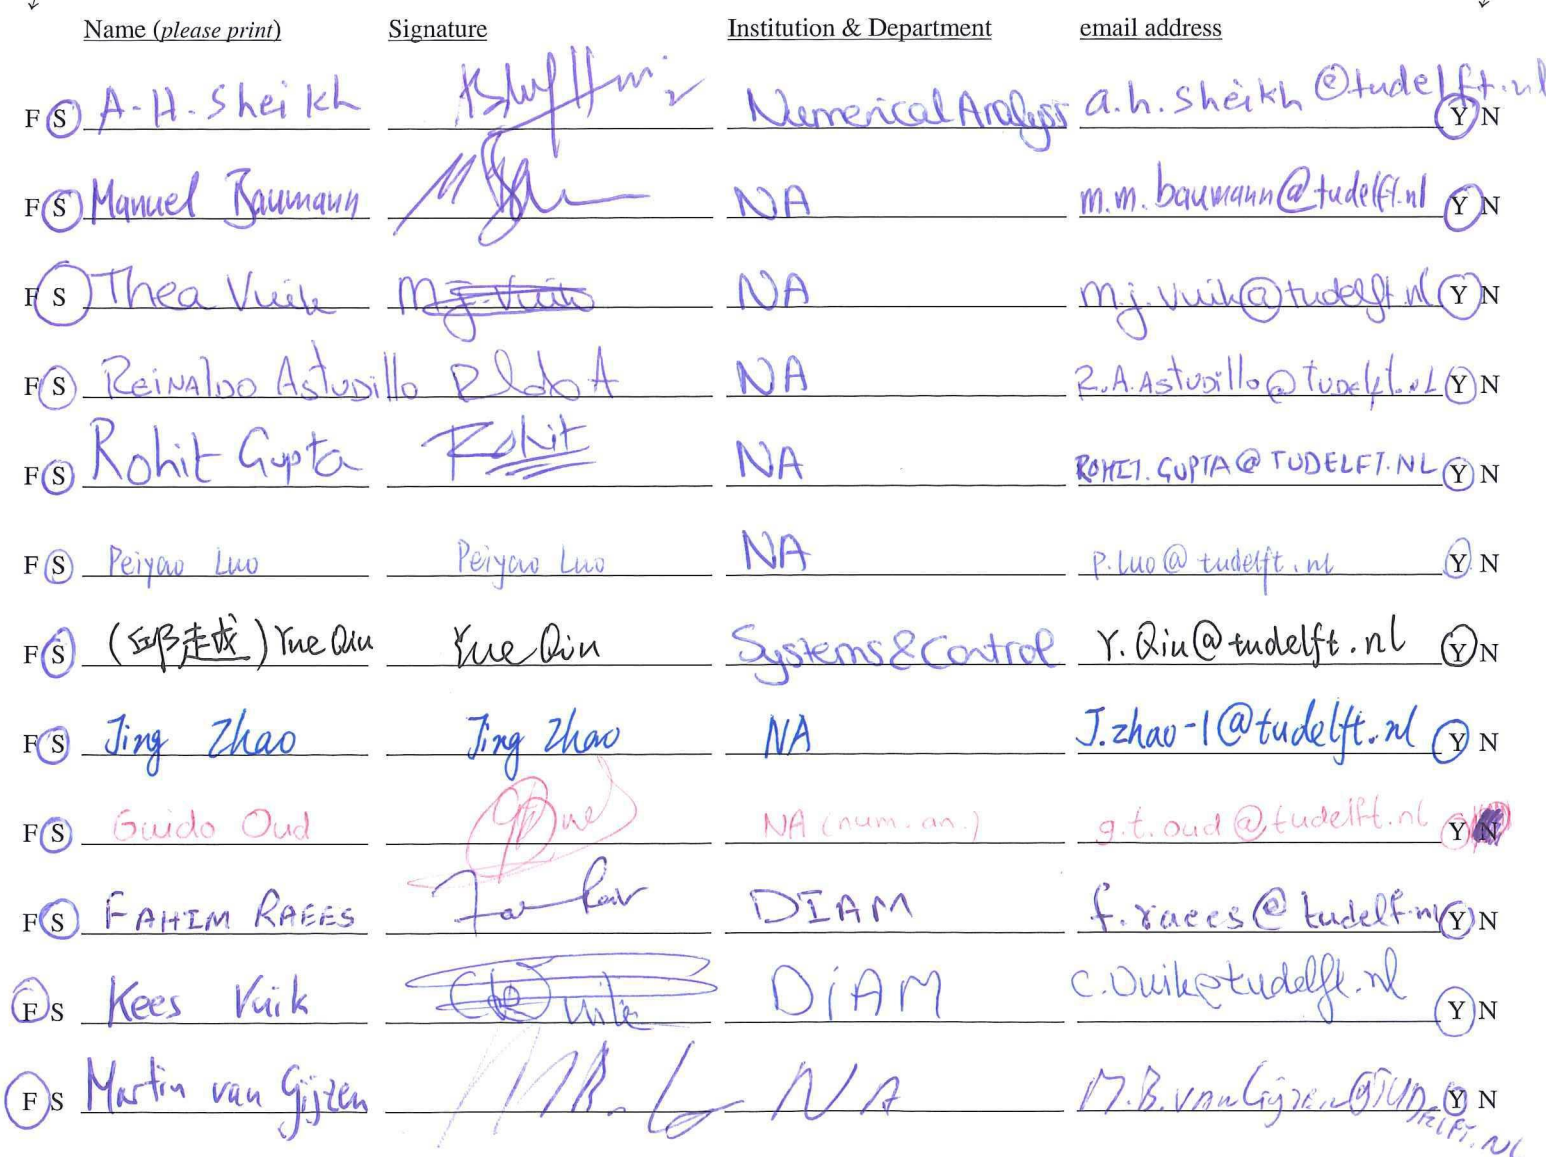 Name (please print) Signature Institution & Department email address
F S A-H. Sheikh Numerical Analysis a.h.sheikh@tudelft.nl Y N
F S Manuel Baumann NA m.m.baumann@tudelft.nl Y N
F S Thea Vuik M.J. Vuik NA m.j.vuik@tudelft.nl Y N
F S REINALDO ASTUDILLO NA R.A.ASTUDillo@TUDelft.nL Y N
F S Rohit Gupta Rohit NA ROHIT.GUPTA@TUDELFT.NL Y N
F S Peiyao Luo Peiyao Luo NA p.luo@tudelft.nl Y N
F S (邱越) Yue Qiu Yue Qiu Systems & Control Y.Qiu@tudelft.nl Y N
F S Jing Zhao Jing Zhao NA J.zhao-1@tudelft.nl Y N
F S Guido Oud NA (num. an.) g.t.oud@tudelft.nl Y N
F S FAHIM RAEES DIAM f.raees@tudelf.nl Y N
F S Kees Vuik DiAM c.vuik@tudelft.nl Y N
F S Martin van Gijzen NA M.B.vanGijzen@TUDELFT.NL Y N